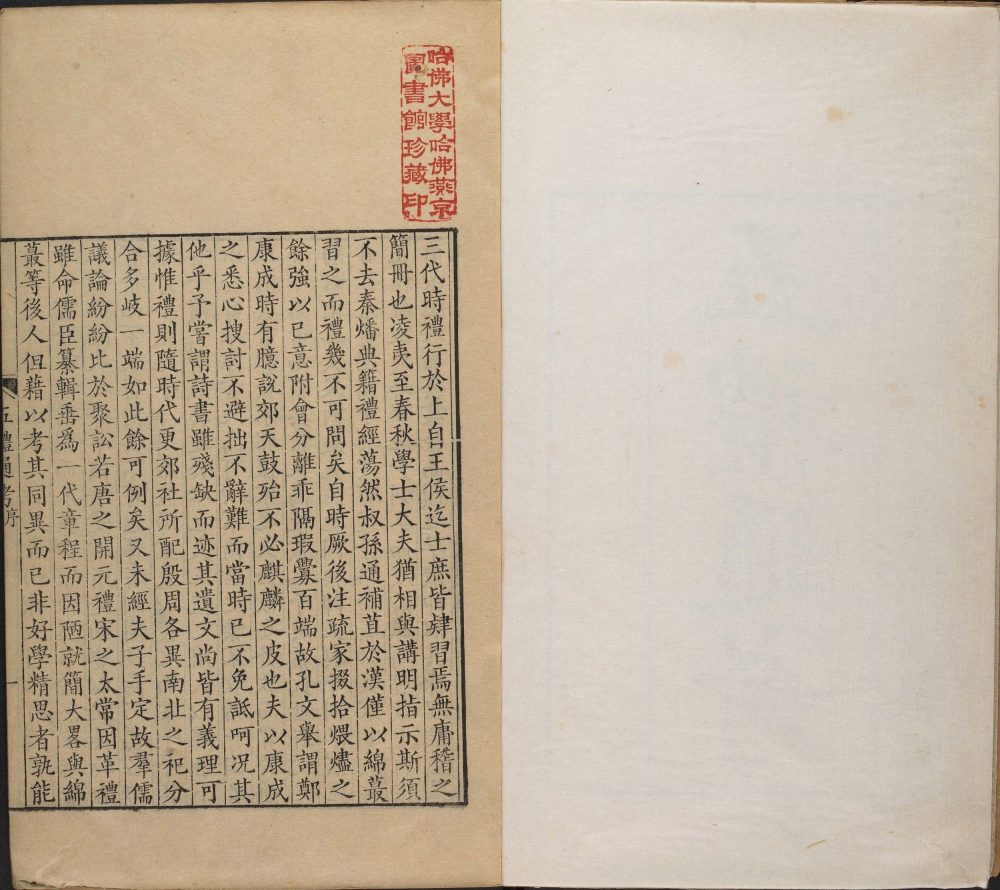 哈佛大學哈佛燕京
圖書館珍藏印
三代時禮行於上自王侯迄士庶皆肄習焉無庸稽之
簡冊也凌夷至春秋學士大夫猶相與講明指示斯須
不去秦燔典籍禮經蕩然叔孫通補苴於漢僅以綿蕞
習之而禮幾不可問矣自時厥後注疏家掇拾煨燼之
餘強以已意附會分離乖隔瑕釁百端故孔文舉謂鄭
康成時有臆說郊天鼓殆不必麒麟之皮也夫以康成
之悉心搜討不避拙不辭難而當時已不免詆呵况其
他乎予嘗謂詩書雖殘缺而迹其遺文尚皆有義理可
據惟禮則隨時代更郊社所配殷周各異南北之祀分
合多岐一端如此餘可例矣又未經夫子手定故羣儒
議論紛紛比於聚訟若唐之開元禮宋之太常因革禮
雖命儒臣纂輯垂爲一代章程而因陋就簡大畧與綿
蕞等後人但藉以考其同異而已非好學精思者孰能
五禮通考序
一